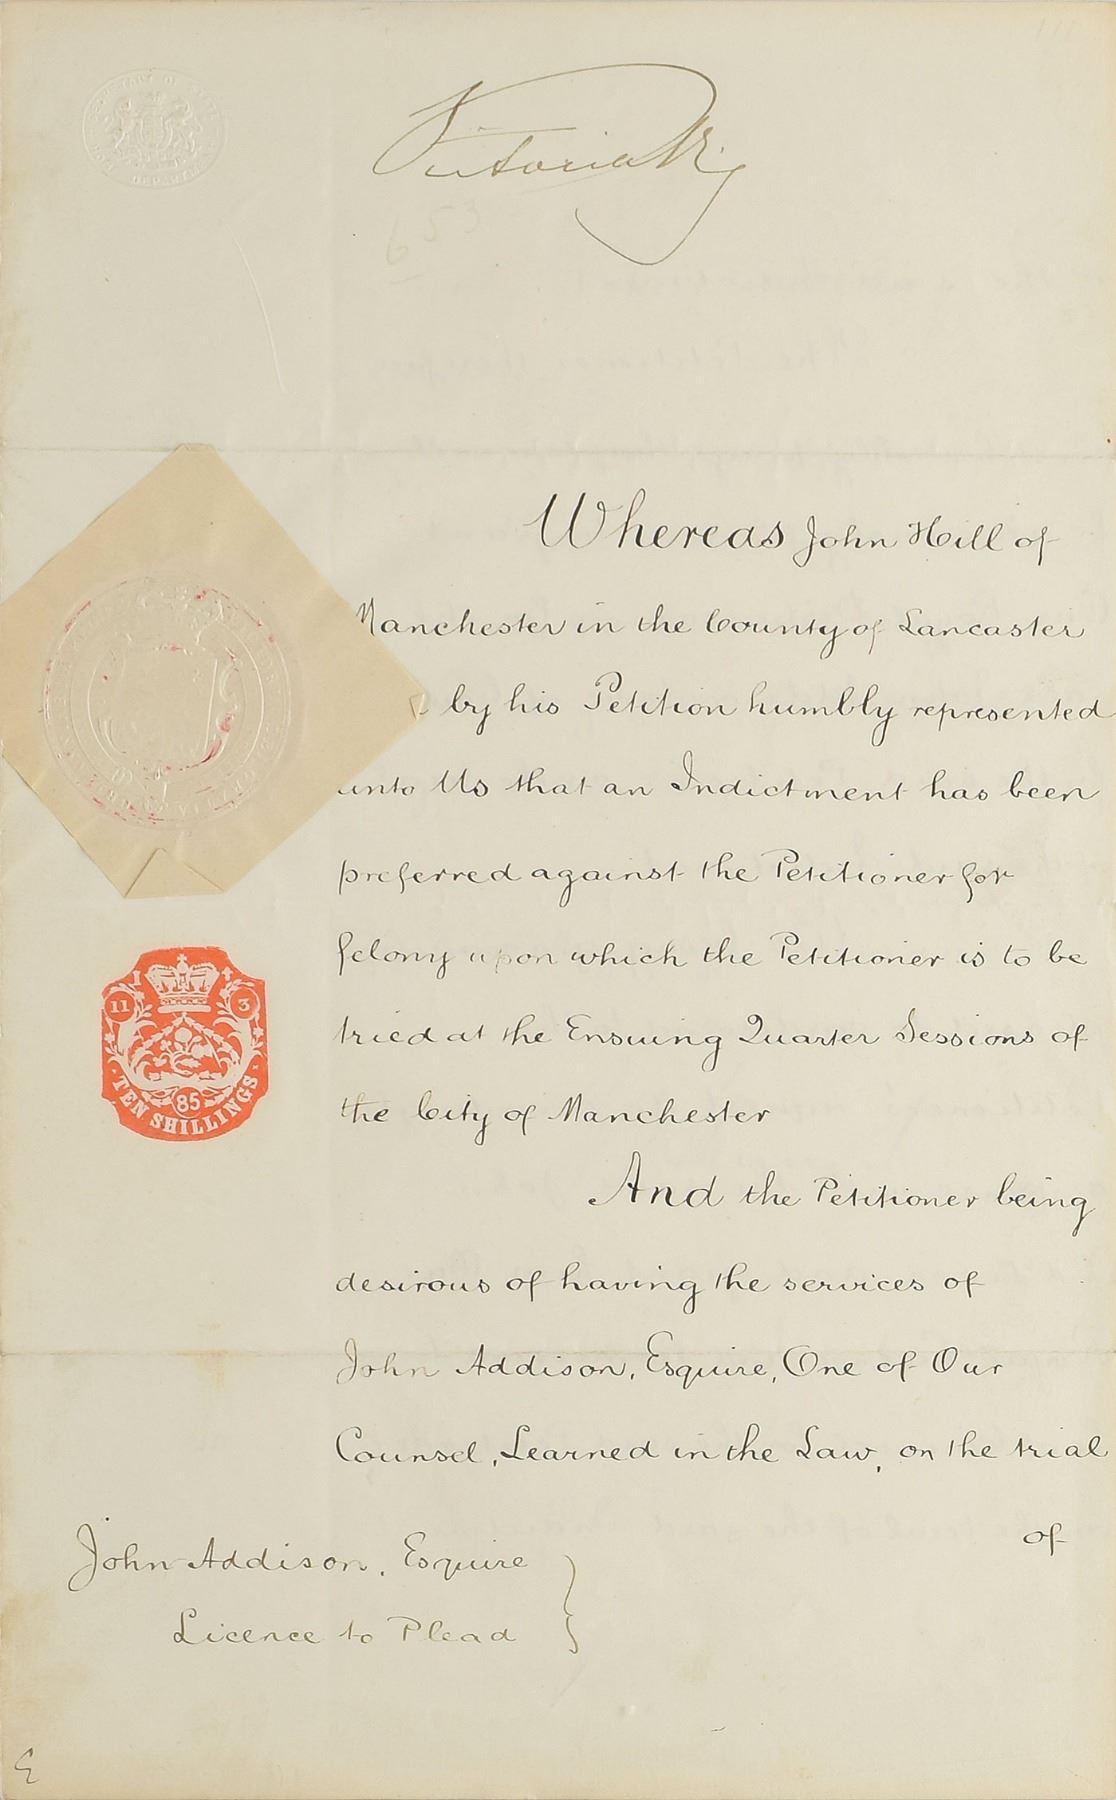 Victoria R
653
Whereas John Hill of
Manchester in the County of Lancaster
by his Petition humbly represented
unto Us that an Indictment has been
preferred against the Petitioner for
felony upon which the Petitioner is to be
tried at the Ensuing Quarter Sessions of
the City of Manchester
And the Petitioner being
desirous of having the services of
John Addison, Esquire, One of Our
Counsel, Learned in the Law, on the trial
of
John Addison, Esquire
Licence to Plead
11 3
85
TEN SHILLINGS